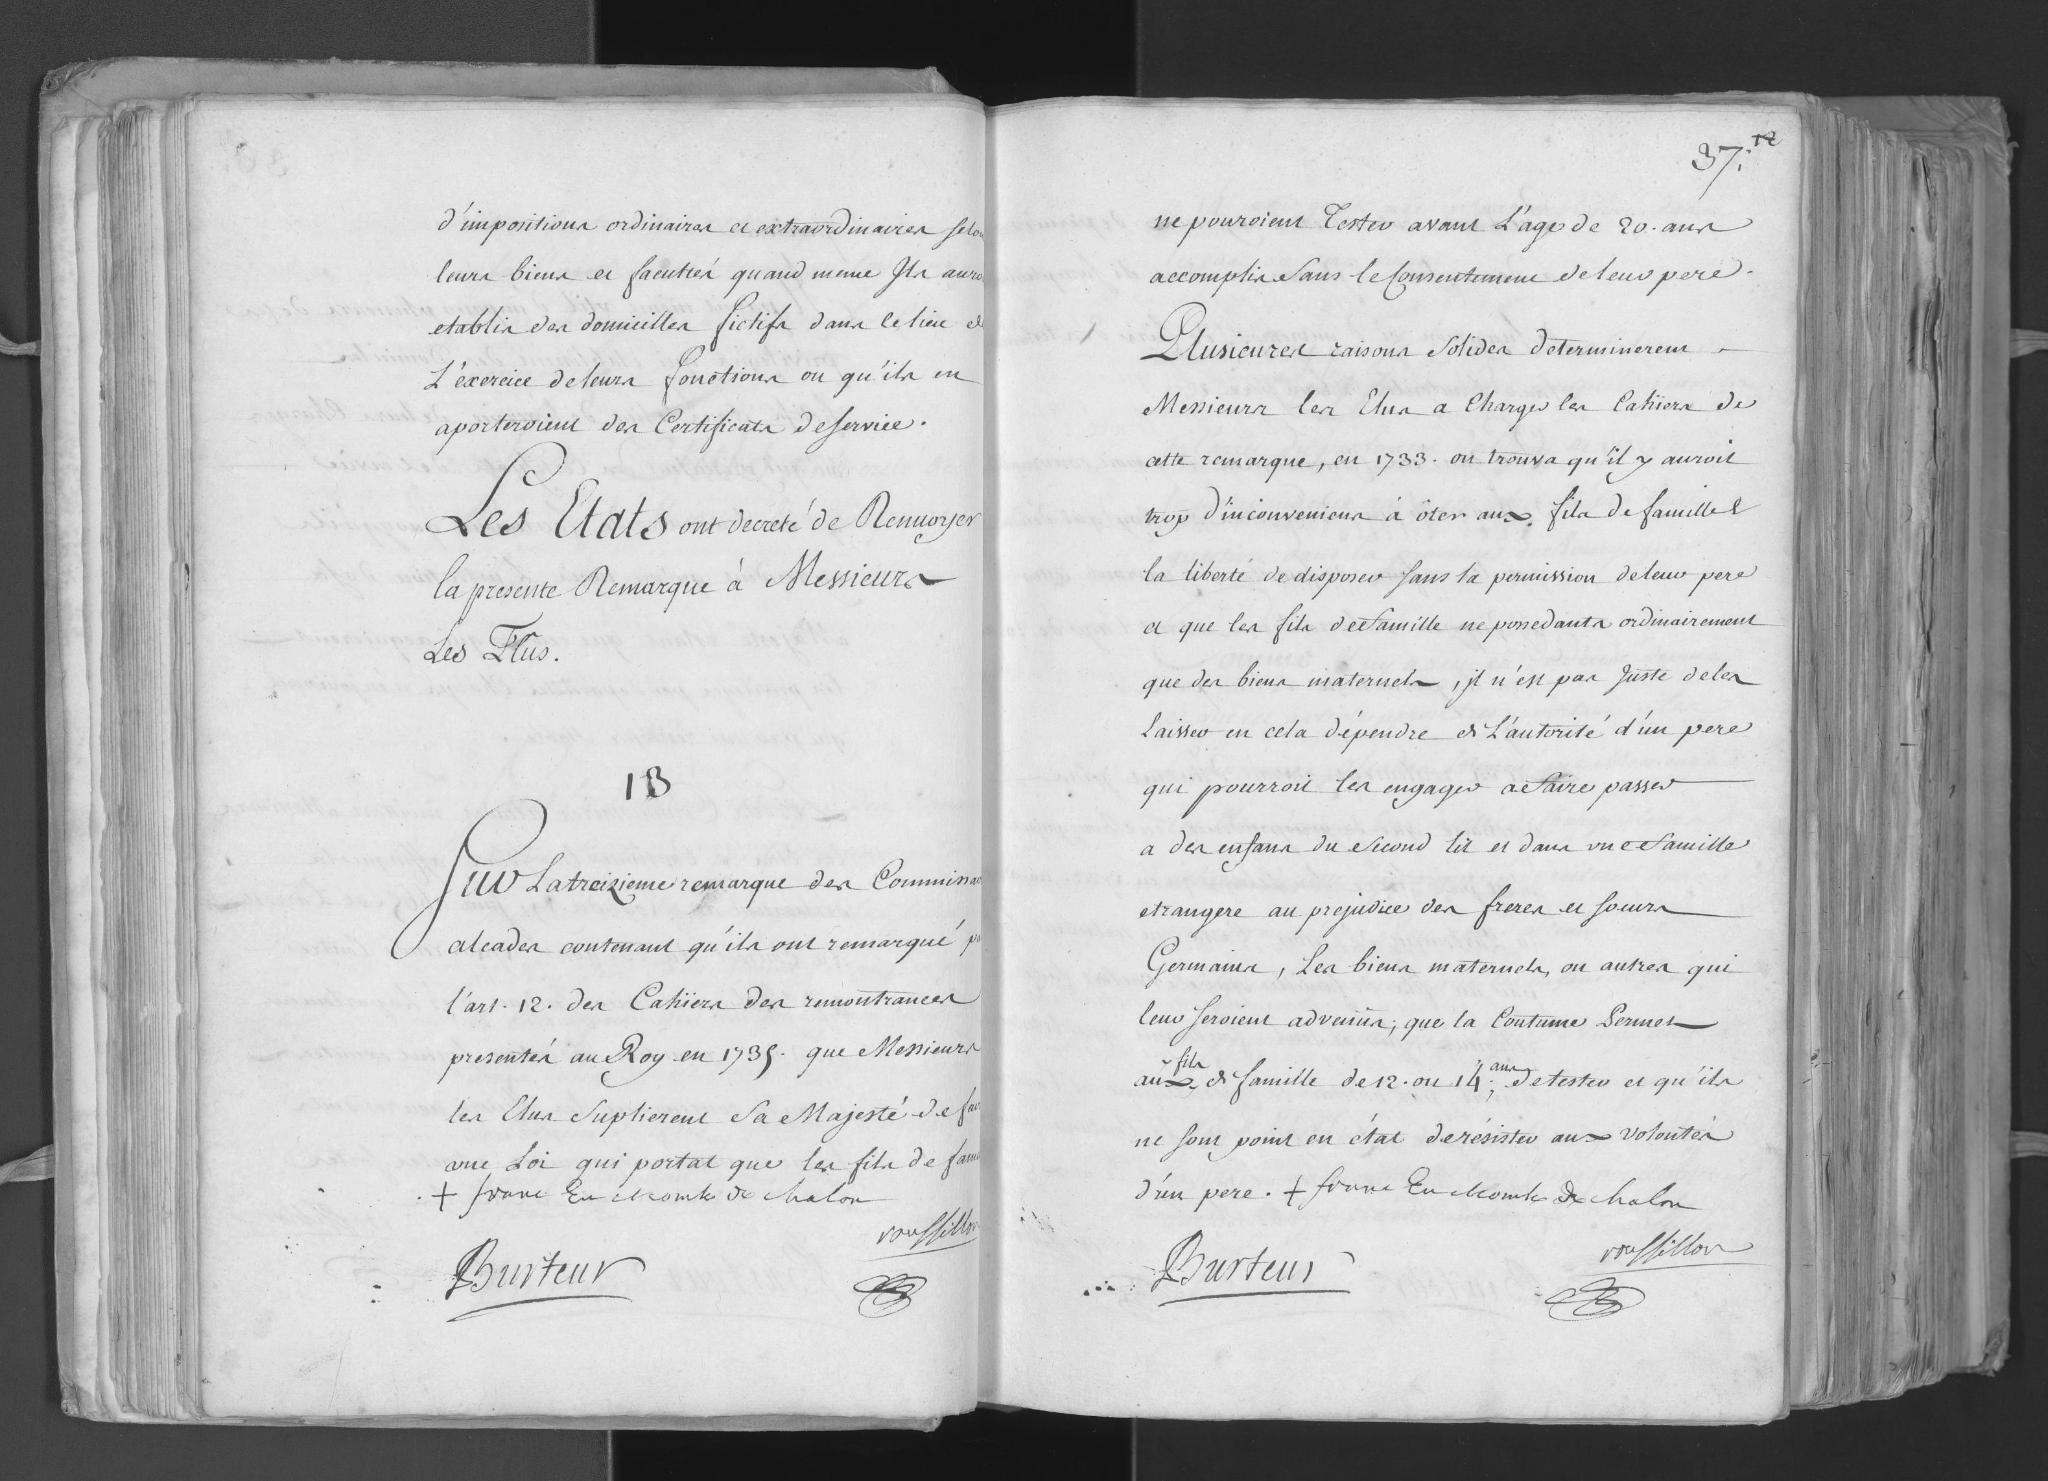 d'impositions ordinaires et extraordinaires selon
leurs biens et facultés quand meme Ils auro
etablis des domicilles fictifs dans le lieu de
L'éxercice de leurs fonctions ou qu'ils en
aporteroient des Certificats de service.
Les Etats ont decreté de Renvoyer
la presente Remarque à Messieurs
Les Elus.
13
Sur La treizieme remarque des Commissai
alcades contenant qu'ils ont remarqué p
l'art. 12. des Cahiers des remontrances
presentés au Roy en 1735. que Messieurs
les Elus Suplierent Sa Majesté de fai
une Loi qui portat que les fils de fam
+ franc Ev. Comte de Chalon
roussillon
Burteur
37.
12
ne pouroient Tester avant L'age de 20. ans
accomplis Sans le Consentement de leur pere.
Plusieures raisons Solides determinerent
Messieurs les Elus a Charger les Cahiers de
cette remarque, en 1733. on trouva qu'il y auroit
trop d'inconveniens à ôter aux fils de famille
la liberté de disposer sans la permission de leur pere
et que les fils de famille ne possedants ordinairement
que des biens maternels, il n'est pas Juste de les
Laisser en cela dépendre de L'autorité d'un pere
qui pourroit les engager a faire passer
a des enfans du Second lit et dans une famille
etrangere au prejudice des freres et soeurs
Germains, Les biens maternels, ou autres qui
leur seroient advenus; que la Coutume Permet
aux fils de famille de 12. ou 14. ans de tester et qu'ils
ne sont point en état de résister aux volontés
d'un pere. + franc Ev. Comte de Chalon
roussillon
Burteur